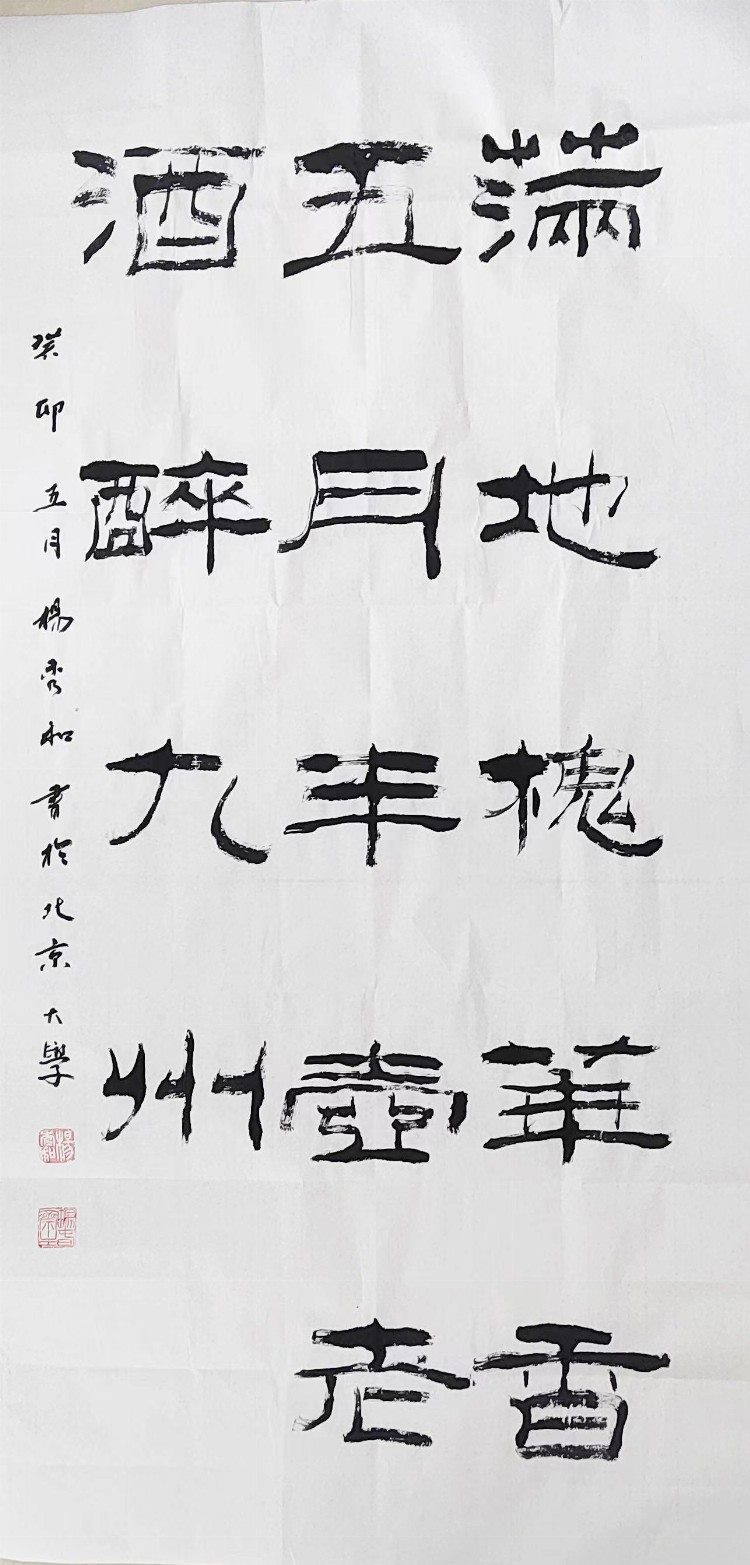 滿地槐華香
五月半壺老
酒醉九州
癸卯五月楊秀和書於北京大學
楊秀和